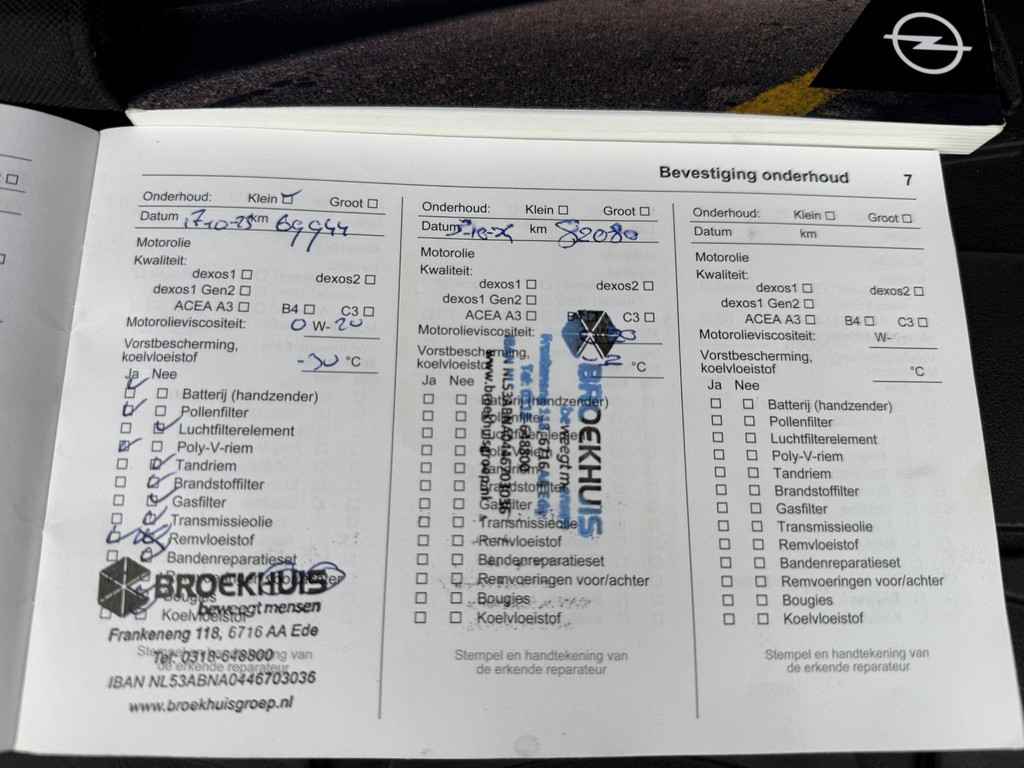 Bevestiging onderhoud 7
Onderhoud: Klein Groot
Datum 17-10-25 km 69944
Motorolie
Kwaliteit:
dexos1 dexos2
dexos1 Gen2
ACEA A3 B4 C3
Motorolieviscositeit: 0 W- 20
Vorstbescherming,
koelvloeistof -30 °C
Ja Nee
Batterij (handzender)
Pollenfilter
Luchtfilterelement
Poly-V-riem
Tandriem
Brandstoffilter
Gasfilter
Transmissieolie
Remvloeistof
Bandenreparatieset
Bougies
Koelvloeistof
BROEKHUIS
beweegt mensen
Frankeneng 118, 6716 AA Ede
Tel: 0318-648800
IBAN NL53ABNA0446703036
www.broekhuisgroep.nl
Stempel en handtekening van
de erkende reparateur
Onderhoud: Klein Groot
Datum km 82080
Motorolie
Kwaliteit:
dexos1 dexos2
dexos1 Gen2
ACEA A3 B4 C3
Motorolieviscositeit:
Vorstbescherming,
koelvloeistof °C
Ja Nee
Batterij (handzender)
Pollenfilter
Luchtfilterelement
Poly-V-riem
Tandriem
Brandstoffilter
Gasfilter
Transmissieolie
Remvloeistof
Bandenreparatieset
Remvoeringen voor/achter
Bougies
Koelvloeistof
BROEKHUIS
beweegt mensen
Frankeneng 118, 6716 AA Ede
Tel: 0318-648800
IBAN NL53ABNA0446703036
www.broekhuisgroep.nl
Stempel en handtekening van
de erkende reparateur
Onderhoud: Klein Groot
Datum km
Motorolie
Kwaliteit:
dexos1 dexos2
dexos1 Gen2
ACEA A3 B4 C3
Motorolieviscositeit: W-
Vorstbescherming,
koelvloeistof °C
Ja Nee
Batterij (handzender)
Pollenfilter
Luchtfilterelement
Poly-V-riem
Tandriem
Brandstoffilter
Gasfilter
Transmissieolie
Remvloeistof
Bandenreparatieset
Remvoeringen voor/achter
Bougies
Koelvloeistof
Stempel en handtekening van
de erkende reparateur